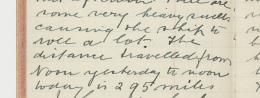 some very heavy swells
causing the ship to
roll a lot. The
distance travelled from
Noon yesterday to noon
today is 295 miles